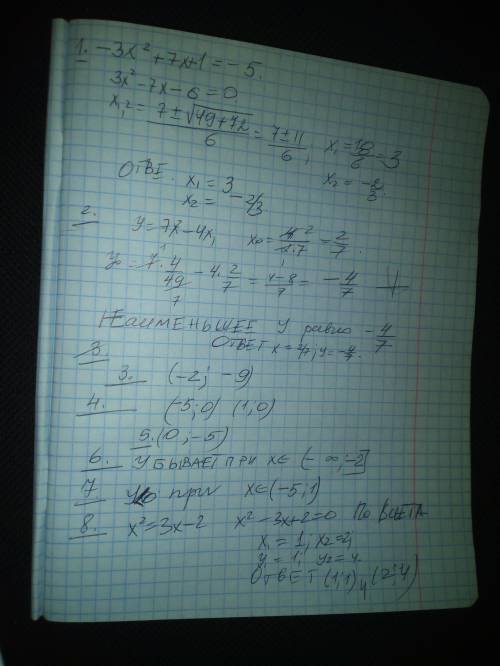 1. -3x² + 7x + 1 = -5.
3x² - 7x - 6 = 0
x₁,₂ = (7 ± √(49+72))/6 = (7 ± 11)/6, x₁ = 18/6 = 3
x₂ = -2/3
ОТВЕ. x₁ = 3
x₂ = -2/3
2. y = 7x² - 4x, x₀ = 4/(2·7) = 2/7.
y₀ = 7·4/49 - 4·2/7 = (4-8)/7 = -4/7
НАИМЕНЬШЕЕ У равно -4/7
ОТВЕТ x = 2/7; y = -4/7.
3.
3. (-2; -9)
4. (-5; 0) (1, 0)
5. (0, -5)
6. УБЫВАЕТ ПРИ x ∈ (-∞; -2]
7 при x ∈ (-5; 1)
8. x² = 3x - 2 x² - 3x + 2 = 0 По ВИЕТА
x₁ = 1; x₂ = 2;
y = 1; y₂ = 4.
ОТВЕТ (1; 1) и (2; 4)